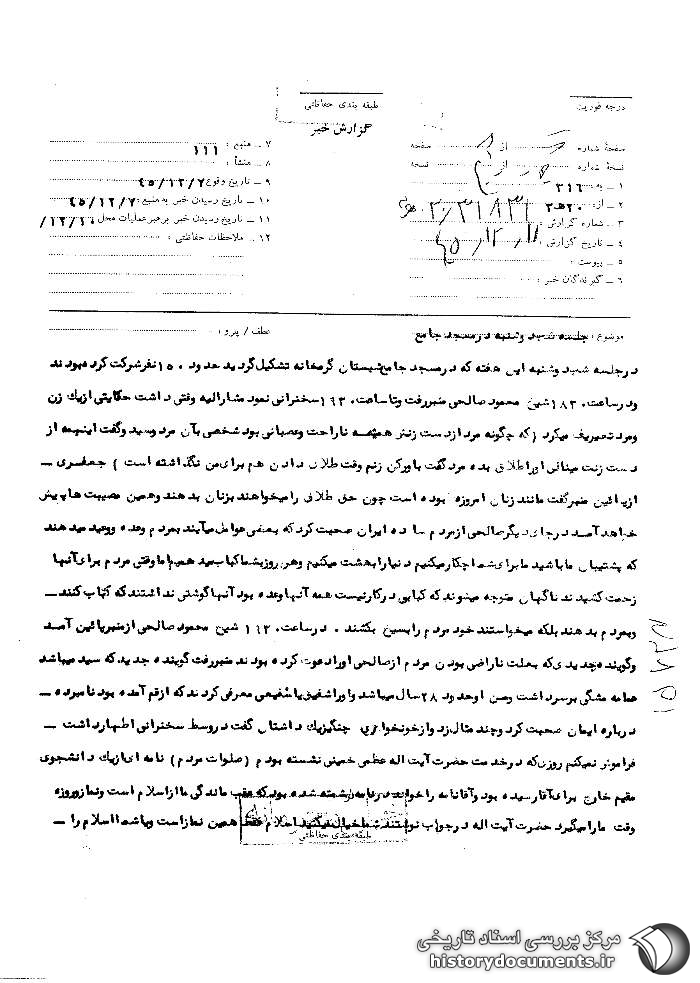 درجه فوریت
طبقه بندی حفاظتی
گزارش خبر
صفحهٔ شماره از صفحه
نسخهٔ شماره از نسخه
۱ – به ۳۱۶
۲ – از ۲۰ ه‍ ۳
۳ – شماره گزارش :
۴ – تاریخ گزارش : ۴۵/۱۲/۱۱
۵ – پیوست :
۶ – گیرندگان خبر :
۷ – منبع : ۱۱۱
۸ – منشأ :
۹ – تاریخ وقوع ۴۵/۱۲/۷
۱۰ – تاریخ رسیدن خبر به منبع : ۴۵/۱۲/۷
۱۱ – تاریخ رسیدن خبر برهبر عملیات محل ۱۲/۱۰/
۱۲ – ملاحظات حفاظتی :
موضوع : جلسه شب دوشنبه در مسجد جامع
عطف / پیرو :
درجلسه شب دوشنبه این هفته که در مسجد جامع شبستان گرمخانه تشکیل گردید حدود ۱۵۰ نفر شرکت کرده بودند
و در ساعت ۱۸۳۰ شیخ محمود صالحی منبر رفت و تا ساعت ۱۹۳۰ سخنرانی نمود مشارالیه وقتی داشت حکایتی از یک زن
و مرد تعریف میکرد (که چگونه مرد از دست زنش همیشه ناراحت و عصبانی بود شخصی بآن مرد رسید و گفت اینهمه از
دست زنت مینالی او را طلاق بده مرد گفت باور کن زنم وقت طلاق دادن هم برای من نگذاشته است ) جعفری –
از پائین منبر گفت مانند زنان امروزه بوده است چون حق طلاق را میخواهند بزنان بدهند و همین مصیبت ها پیش
خواهد آمد در جای دیگر صالحی از مردم ساده ایران صحبت کرد که بعضی عوامل میآیند بمردم وعده و وعید میدهند
که پشتیبان ما باشید ما برای شما چکار میکنیم دنیا را بهشت میکنیم و هر روز بشما کباب میدهیم اما وقتی مردم برای آنها
زحمت کشیدند ناگهان متوجه میشوند که کبابی در کار نیست همه آنها وعده بود آنها گوشتی نداشتند که کباب کنند –
و بمردم بدهند بلکه میخواستند خود مردم را بسیخ بکشند . در ساعت ۱۹۳۰ شیخ محمود صالحی از منبر پائین آمد
و گوینده جدیدی که بعلت ناراضی بودن مردم از صالحی او را دعوت کرده بودند منبر رفت گوینده جدید که سید میباشد
عمامه مشگی بر سر داشت و سن او حدود ۲۸ سال میباشد و او را شفیق یا شفیعی معرفی کردند که از قم آمده بود نامبرده –
درباره ایمان صحبت کرد و چند مثال زد و از خونخواری چنگیز یک داشتال گفت در وسط سخنرانی اظهار داشت –
فراموش نمیکنم روزی که در خدمت حضرت آیت اله عظمی خمینی نشسته بودم ( صلوات مردم ) نامه ای از یک دانشجوی
مقیم خارج برای آقا رسیده بود و آقا نامه را خواند در نامه نوشته شده بود که عقب ماندگی ما از اسلام است و نماز و روزه
وقت ما را میگیرد حضرت آیت اله در جواب نوشتند شما خیال میکنید اسلام فقط همین نماز است و یا شما اسلام را –
طبقه بندی حفاظتی
مرکز بررسی اسناد تاریخی
historydocuments.ir